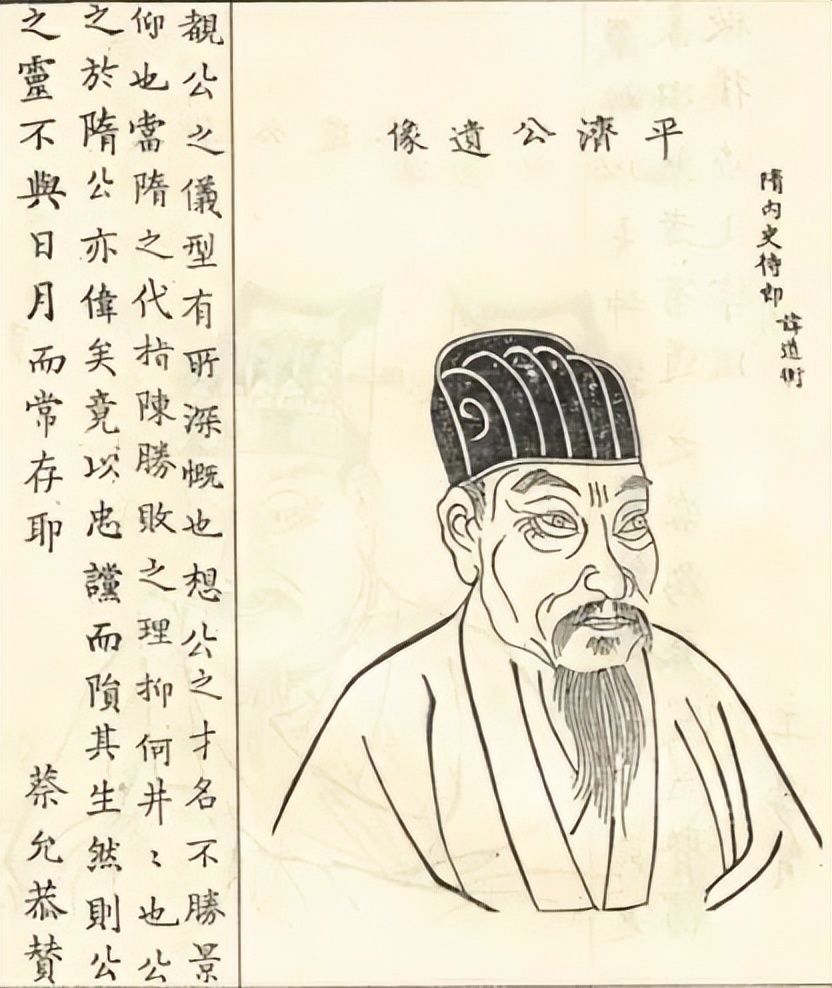 平濟公遺像
隋內史侍郎 諱道衡
覩公之儀型有所深慨也想公之才名不勝景
仰也當隋之代指陳勝敗之理抑何井〻也公
之於隋公亦偉矣竟以忠讜而隕其生然則公
之靈不與日月而常存耶
蔡允恭贊